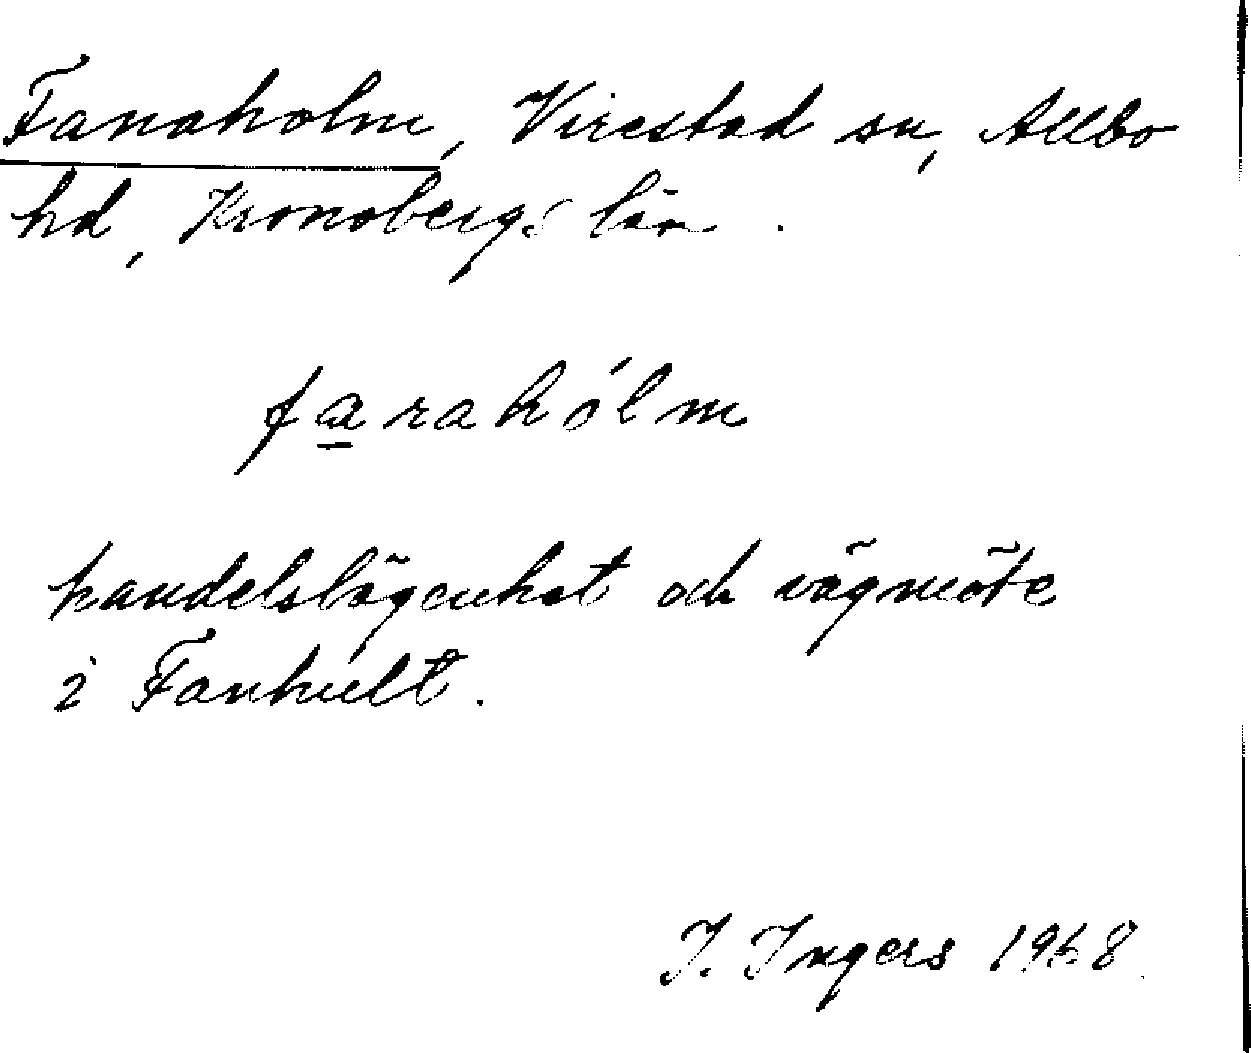 Fanaholm, Virestad sn, Allbo
hd, Kronobergs län.
fanahólm
handelslägenhet och vägmöte
i Fanhult.
I. Ingers 1968.